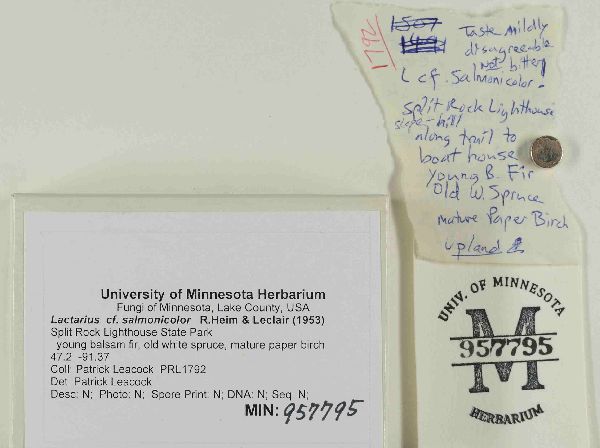 1792
Taste mildly
disagreeable
Not bitter
L cf. Salmonicolor.
Split Rock Lighthouse
slope - hill
along trail to
boat house
young B. Fir
Old W. Spruce
mature Paper Birch
upland
University of Minnesota Herbarium
Fungi of Minnesota, Lake County, USA
Lactarius cf. salmonicolor R.Heim & Leclair (1953)
Split Rock Lighthouse State Park
young balsam fir, old white spruce, mature paper birch
47.2 -91.37
Coll: Patrick Leacock PRL1792
Det: Patrick Leacock
Desc: N; Photo: N; Spore Print: N; DNA: N; Seq: N;
MIN: 957795
UNIV. OF MINNESOTA
M
957795
HERBARIUM